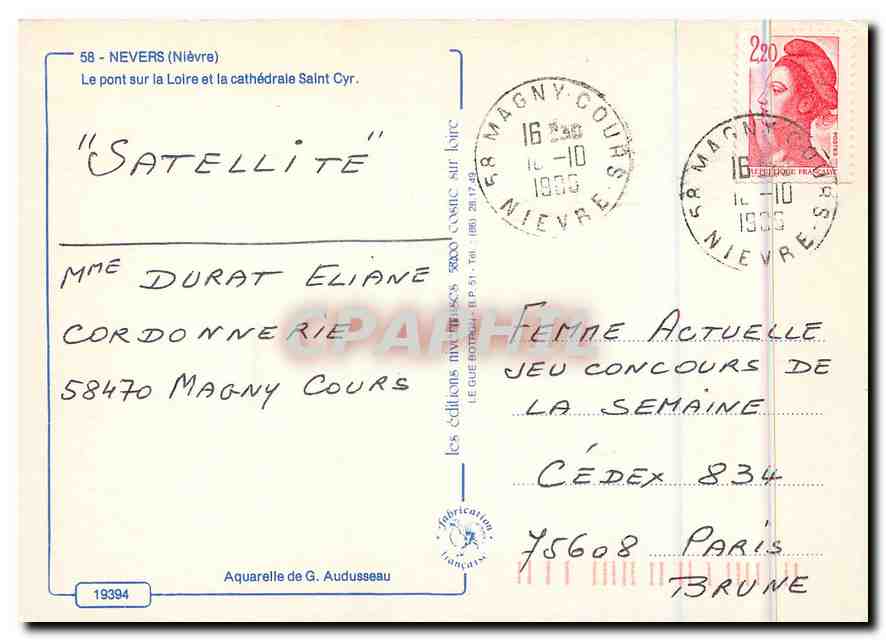 58 - NEVERS (Nièvre)
Le pont sur la Loire et la cathédrale Saint Cyr.
"SATELLITE"
MME DURAT ELIANE
CORDONNERIE
58470 MAGNY COURS
Aquarelle de G. Audusseau
19394
les éditions nivernaises 58200 cosne sur loire
LE GUE BOTRON - B.P. 51 - Tél. : (86) 28.17.49
fabrication
française
58 MAGNY-COURS
16
-10
NIEVRE
2,20
REPUBLIQUE FRANÇAISE
58 MAGNY-COURS
16
-10
NIEVRE
FEMME ACTUELLE
JEU CONCOURS DE
LA SEMAINE
CÉDEX 834
75608 PARIS
BRUNE
CPAPHIL